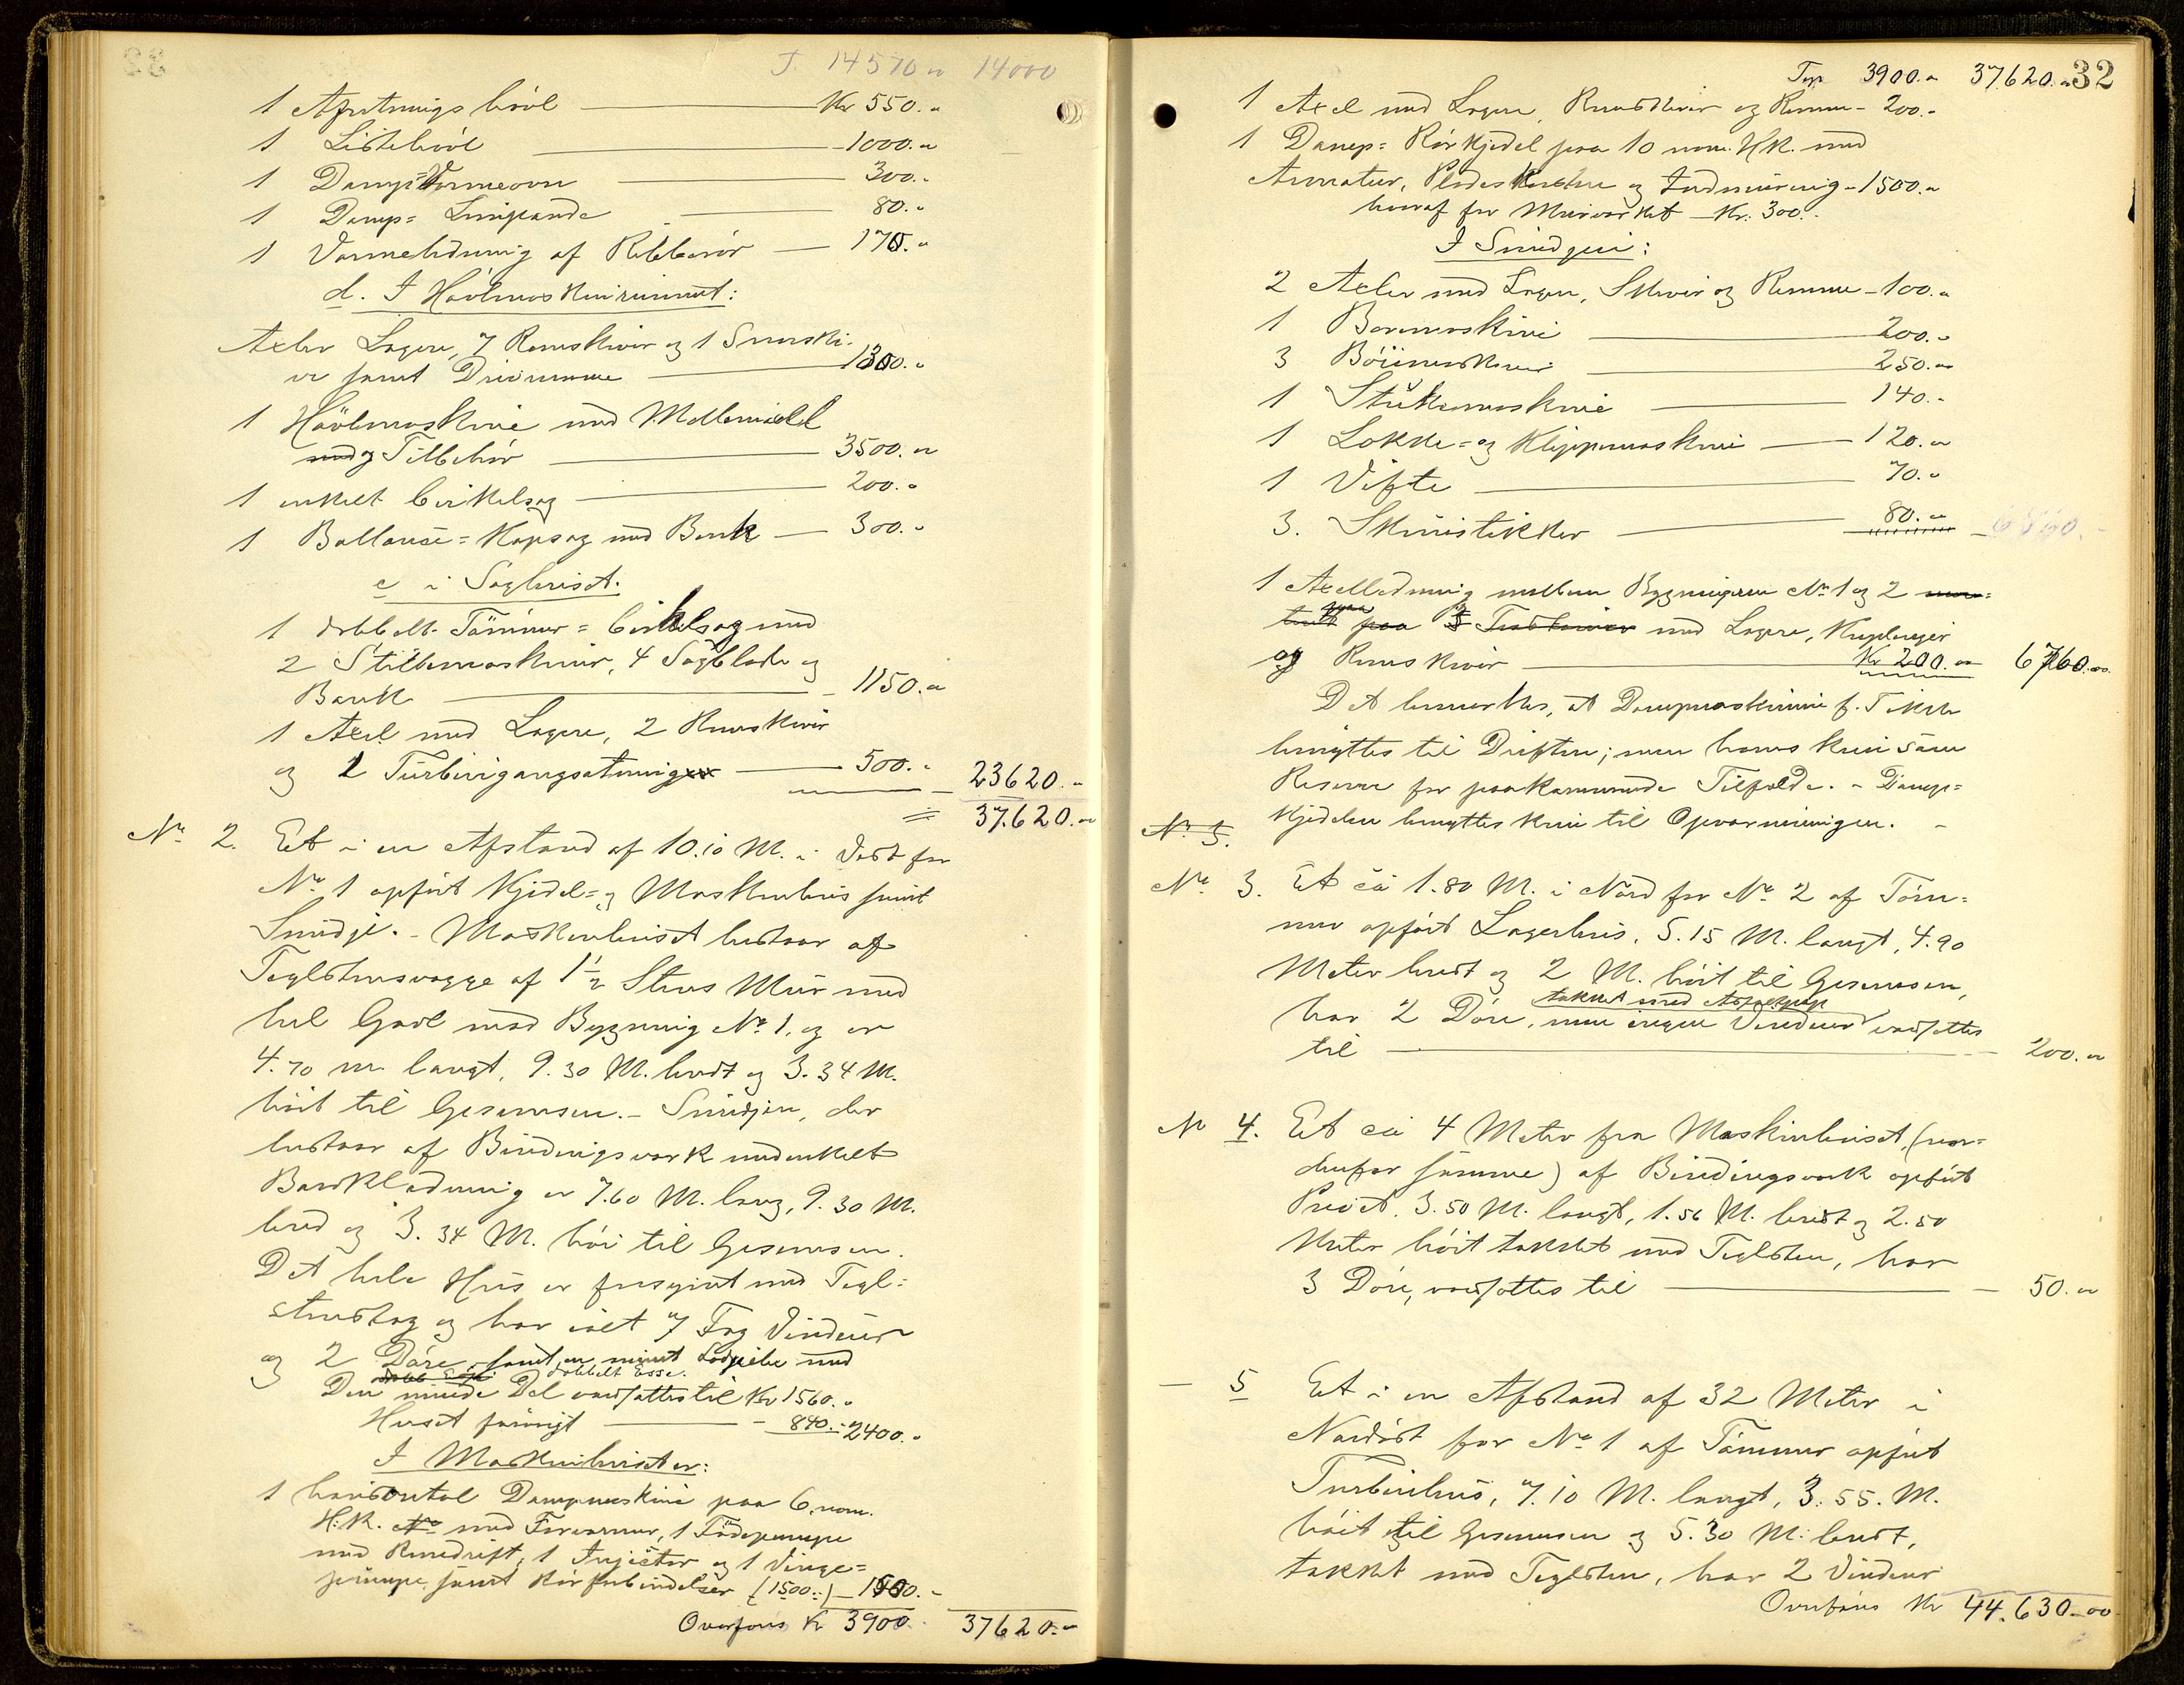 T. 14570 " 14000
1 Afretningshövl Kr 550. "
1 Listehövl 1000. "
1 Damp=Varmeovn 300. "
1 Damp= Limpande 80. "
1 Varmeledning af Ribberör 175. "
d. I Hövlmaskinrummet:
Axler Lagere, 7 Remskiver og 1 Snorski-
ve samt Drivremme 1300. "
1 Hövlmaskine med Mellemaxel
med og Tilbehör 3500. "
1 enkelt Cirkelsag 200. "
1 Ballance= Kapsag med Bænk 300. "
e i Saghuset.
1 dobbelt Tömmer= Cirkelsag med
2 Stillemaskiner, 4 Sagblade og
Bænk 1150. "
1 Axel med Lagere, 2 Remskiver
og 1 Turbinigangsætning 500. " 23620. "
37.620. "
No 2. Et i en Afstand af 10.10 M. i Vest for
No 1 opfört Kjedel= og Maskinhus samt
Smidje. - Maskinhuset bestaar af
Teglstensvægge af 1½ Stens Mur med
hel Gavl mod Bygning No 1, og er
4.70 m. langt, 9.30 M. bredt og 3.34 M.
höit til Gesimsen. - Smidjen, der
bestaar af Bindingsværk med enkelt
Bordklædning er 7.60 M. lang, 9.30 M.
bred og 3.34 M. höi til Gesimsen.
Det hele Hus er forsynet med Tegl=
stenstag og har ialt 7 Fag Vinduer
og 2 Döre, samt en muret Lodpibe med
dobbelt Esse.
Den murede Del værdsættes til Kr 1560. "
Huset forövrigt - 840. - 2400. "
I Maskinhuset er:
1 horisontal Dampmaskine paa 6 nom.
H.K. No med Forvarmer, 1 Födepumpe
med Remdrift, 1 Injector og 1 Vinge=
pumpe samt Rörforbindelser (1500.-) 1500. -
Overföres Kr 3900. 37620. "
32
Trp 3900. " 37.620. "
1 Axel med Lagere, Remskiver og Remme - 200. -
1 Damp= Rörkjedel paa 10 nom. H.K. med
Armatur, Pladeskorsten og Indmuring - 1500. "
hvoraf for Murværket Kr. 300. -
I Smidjen:
2 Axler med Lagere, Skiver og Remme - 100. "
1 Boremaskine 200. "
3 Böiemaskiner 250. "
1 Stukemaskine 140. "
1 Lokke= og Klippemaskine 120. "
1 Vifte 70. "
3. Skruestikker 80. "
1 Axelledning mellem Bygningerne No 1 og 2
med Lagere, Kuplinger
og Remskiver Kr 200. " 6760. "
Det bemærkes, at Dampmaskinen p. T. ikke
benyttes til Driften; men haves kun som
Reserve for paakommende Tilfælde. - Damp=
kjedelen benyttes kun til Opvarmningen. -
No 3.
No 3. Et ca 1.80 M. i Nord for No 2 af Töm=
mer opfört Lagerhus, 5.15 M. langt, 4.90
Meter bredt og 2 M. höit til Gesimsen,
takket med Asfaltpap
har 2 Döre, men ingen Vinduer værdsættes
til 200. "
No 4. Et ca 4 Meter fra Maskinhuset, (nor=
denfor samme) af Bindingsværk opfört
Privet, 3.50 M. langt, 1.56 M. bredt og 2.50
Meter höit takket med Teglsten, har
3 Döre, værdsættes til 50. "
— 5 Et i en Afstand af 32 Meter i
Nordöst for No 1 af Tömmer opfört
Turbinhus, 7.10 M. langt, 3.55. M.
höit til Gesimsen og 5.30 M. bredt,
takket med Teglsten, har 2 Vinduer
Overföres Kr 44.630.00